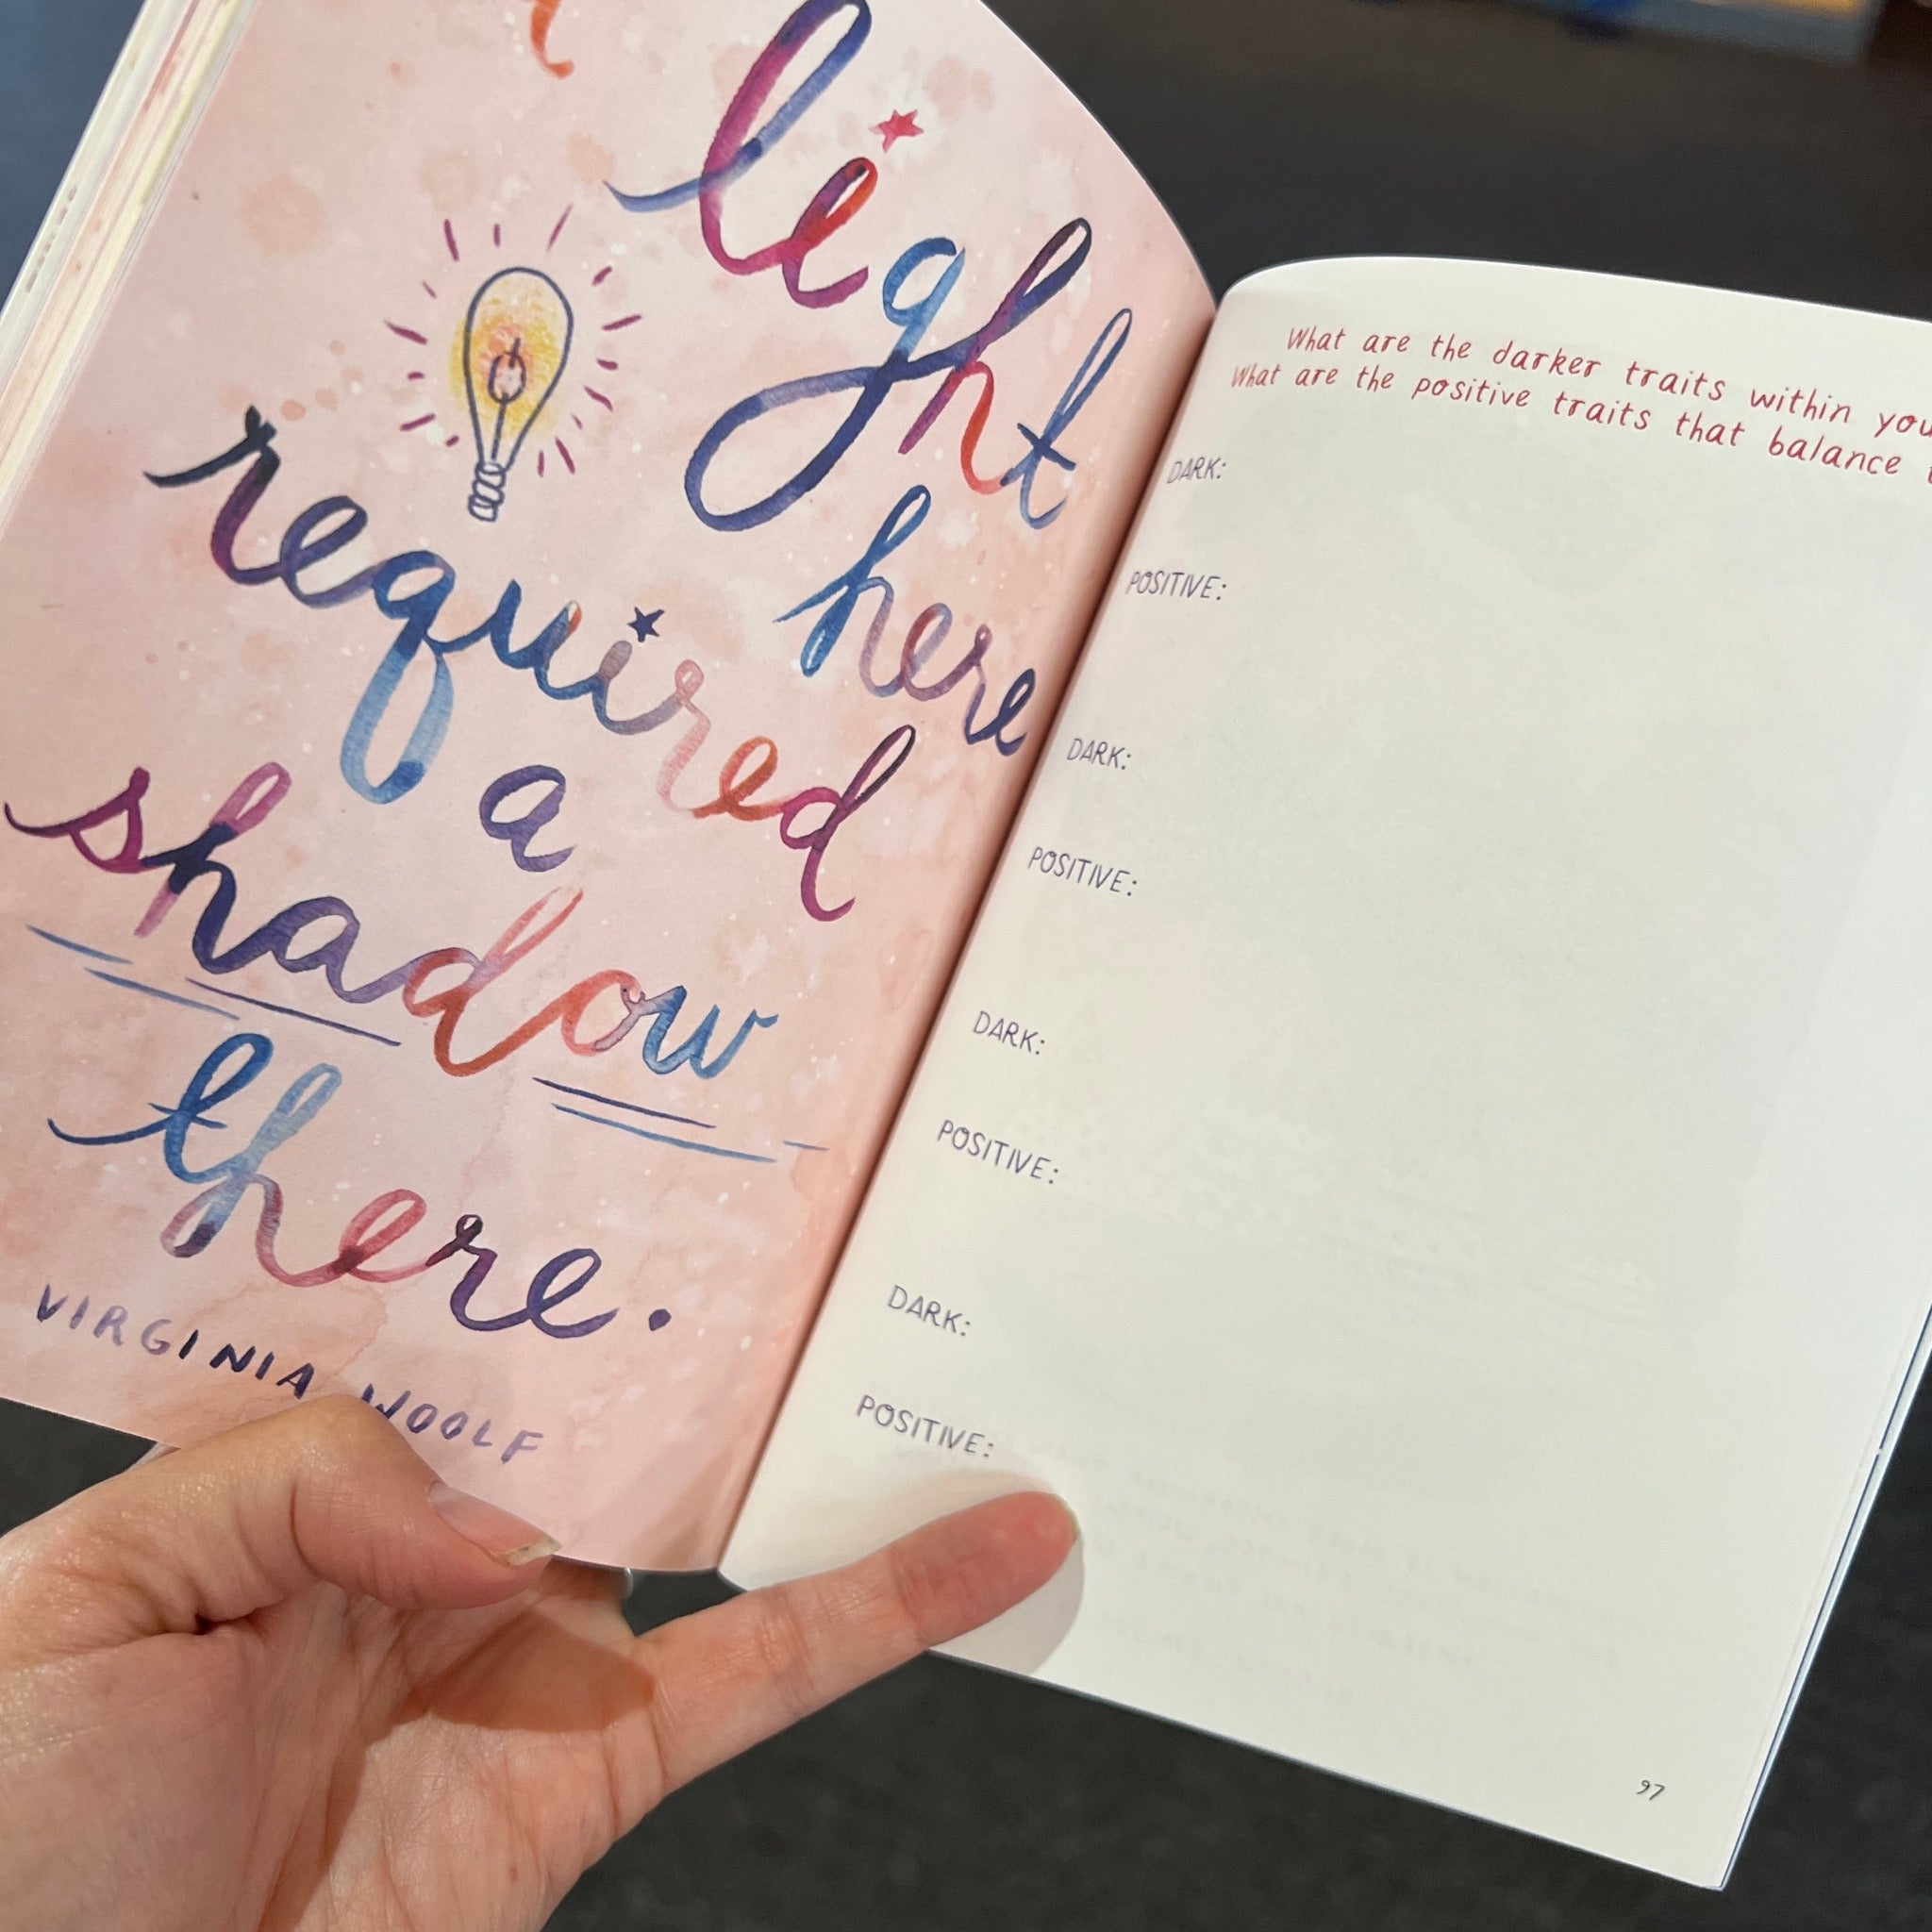 light
here
required
a
shadow
there.
VIRGINIA WOOLF
What are the darker traits within
What are the positive traits that balance
DARK:
POSITIVE:
DARK:
POSITIVE:
DARK:
POSITIVE:
DARK:
POSITIVE:
97